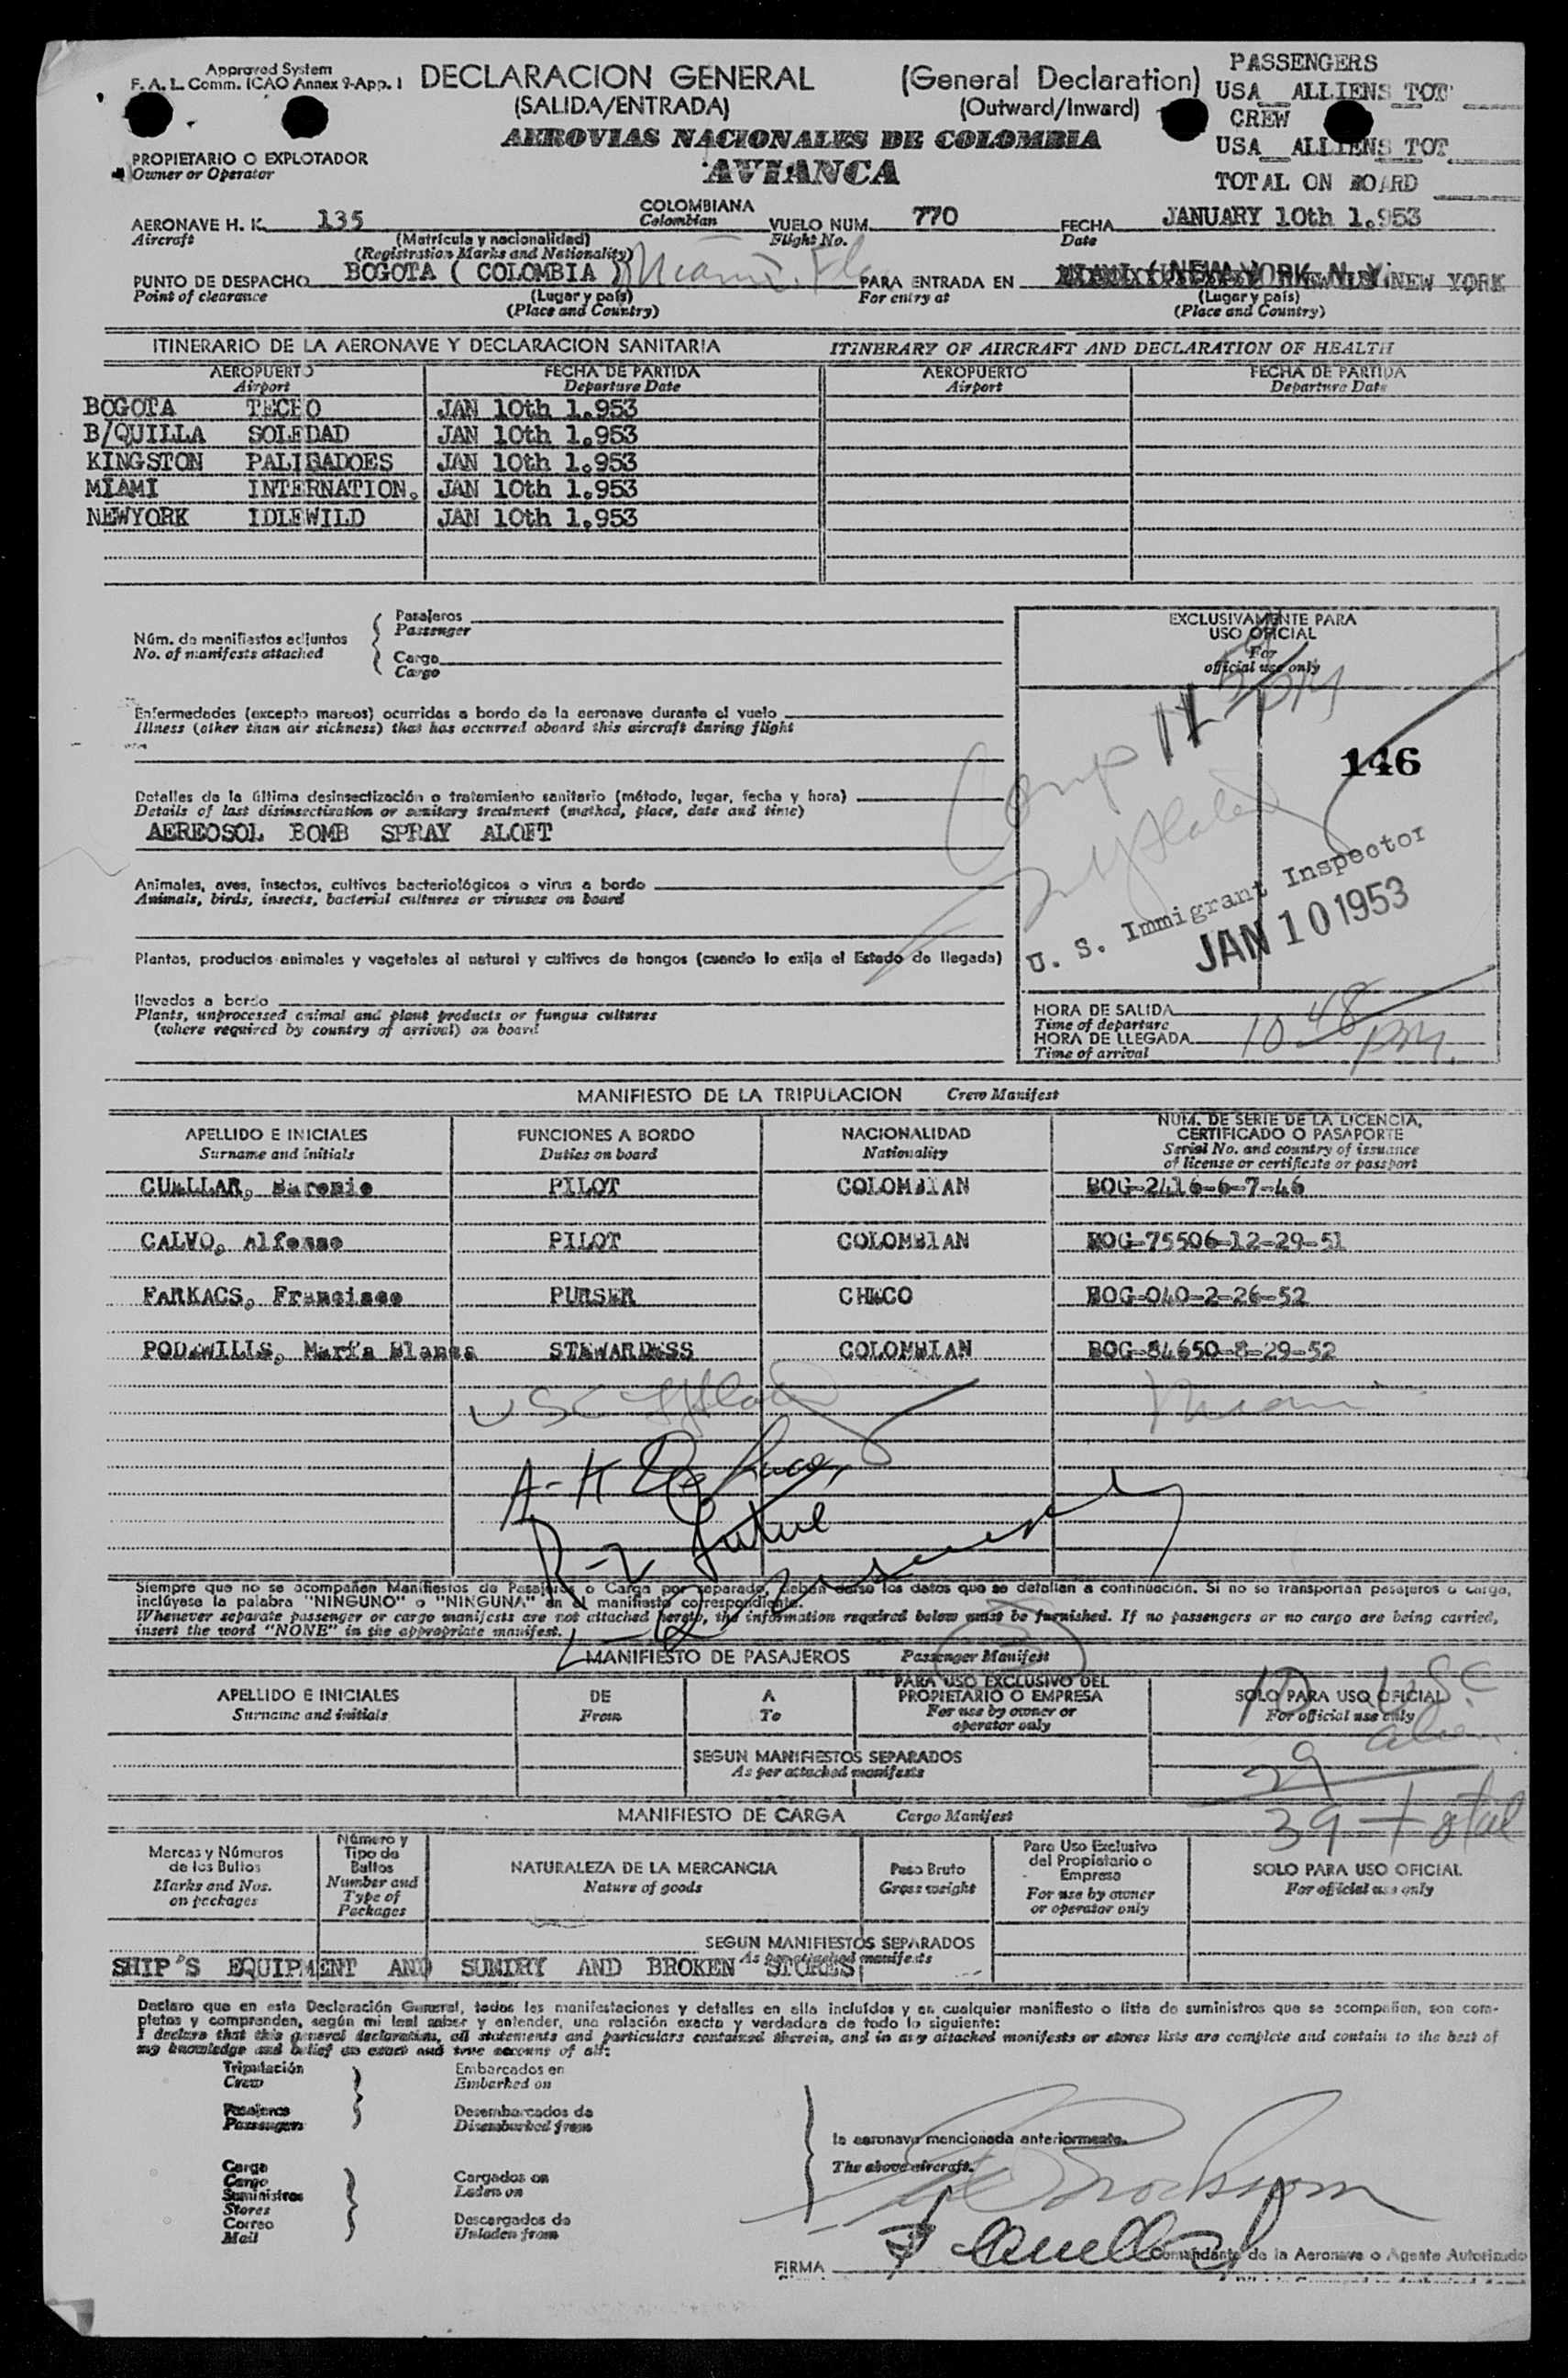 Approved System
F. A. L. Comm. ICAO Annex 9-App. 1
DECLARACION GENERAL (General Declaration)
(SALIDA/ENTRADA) (Outward/Inward)
AEROVIAS NACIONALES DE COLOMBIA
AVIANCA
PASSENGERS
USA ALLIENS TOT
CREW
USA ALLIENS TOT
TOTAL ON BOARD
PROPIETARIO O EXPLOTADOR
Owner or Operator
AERONAVE H. K. 135 COLOMBIANA VUELO NUM. 770 FECHA JANUARY 10th 1.953
Aircraft (Matrícula y nacionalidad) Colombian Flight No. Date
(Registration Marks and Nationality)
PUNTO DE DESPACHO BOGOTA ( COLOMBIA ) Miami. Fla PARA ENTRADA EN NEW YORK
Point of clearance (Lugar y país) For entry at (Lugar y país)
(Place and Country) (Place and Country)
ITINERARIO DE LA AERONAVE Y DECLARACION SANITARIA ITINERARY OF AIRCRAFT AND DECLARATION OF HEALTH
AEROPUERTO FECHA DE PARTIDA AEROPUERTO FECHA DE PARTIDA
Airport Departure Date Airport Departure Date
BOGOTA TECHO JAN 10th 1.953
B/QUILLA SOLEDAD JAN 10th 1.953
KINGSTON PALISADOES JAN 10th 1.953
MIAMI INTERNATION. JAN 10th 1.953
NEWYORK IDLEWILD JAN 10th 1.953
Núm. de manifiestos adjuntos
No. of manifests attached
Pasajeros
Passenger
Carga
Cargo
EXCLUSIVAMENTE PARA
USO OFICIAL
For
official use only
Enfermedades (excepto mareos) ocurridas a bordo de la aeronave durante el vuelo
Illness (other than air sickness) that has occurred aboard this aircraft during flight
146
Detalles de la última desinsectización o tratamiento sanitario (método, lugar, fecha y hora)
Details of last disinsectization or sanitary treatment (method, place, date and time)
AEREOSOL BOMB SPRAY ALOFT
Animales, aves, insectos, cultivos bacteriológicos o virus a bordo
Animals, birds, insects, bacterial cultures or viruses on board
U. S. Immigrant Inspector
JAN 10 1953
Plantas, productos animales y vegetales al natural y cultivos de hongos (cuando lo exija el Estado de llegada)
llevados a bordo
Plants, unprocessed animal and plant products or fungus cultures
(where required by country of arrival) on board
HORA DE SALIDA
Time of departure
HORA DE LLEGADA 10 48 PM.
Time of arrival
MANIFIESTO DE LA TRIPULACION Crew Manifest
APELLIDO E INICIALES FUNCIONES A BORDO NACIONALIDAD NUM. DE SERIE DE LA LICENCIA,
CERTIFICADO O PASAPORTE
Surname and Initials Duties on board Nationality Serial No. and country of issuance
of license or certificate or passport
CUELLAR, PILOT COLOMBIAN BOG-2416-6-7-46
CALVO, Alfonso PILOT COLOMBIAN BOG-75506-12-29-51
FARKACS, Francisco PURSER CHECO BOG-040-2-26-52
PODEWILLS, María Blanca STEWARDESS COLOMBIAN BOG-84650-8-29-52
Siempre que no se acompañen Manifiestos de Pasajeros o Carga por separado, deben darse los datos que se detallan a continuación. Si no se transportan pasajeros o carga,
inclúyase la palabra "NINGUNO" o "NINGUNA" en el manifiesto correspondiente.
Whenever separate passenger or cargo manifests are not attached hereto, the information required below must be furnished. If no passengers or no cargo are being carried,
insert the word "NONE" in the appropriate manifest.
MANIFIESTO DE PASAJEROS Passenger Manifest
APELLIDO E INICIALES DE A PARA USO EXCLUSIVO DEL
PROPIETARIO O EMPRESA SOLO PARA USO OFICIAL
Surname and initials From To For use by owner or
operator only For official use only
10 USC
29 alien
39 total
SEGUN MANIFIESTOS SEPARADOS
As per attached manifests
MANIFIESTO DE CARGA Cargo Manifest
Marcas y Números
de los Bultos
Marks and Nos.
on packages
Número y
Tipo de
Bultos
Number and
Type of
Packages
NATURALEZA DE LA MERCANCIA
Nature of goods
Peso Bruto
Gross weight
Para Uso Exclusivo
del Propietario o
Empresa
For use by owner
or operator only
SOLO PARA USO OFICIAL
For official use only
SEGUN MANIFIESTOS SEPARADOS
As per attached manifests
SHIP'S EQUIPMENT AND SUNDRY AND BROKEN STORES
Declaro que en esta Declaración General, todas las manifestaciones y detalles en ella incluídos y en cualquier manifiesto o lista de suministros que se acompañen, son com-
pletos y comprenden, según mi leal saber y entender, una relación exacta y verdadera de todo lo siguiente:
I declare that this general declaration, all statements and particulars contained therein, and in any attached manifests or stores lists are complete and contain to the best of
my knowledge and belief an exact and true account of all:
Tripulación
Crew
Pasajeros
Passengers
Embarcados en
Embarked on
Desembarcados de
Disembarked from
Carga
Cargo
Suministros
Stores
Correo
Mail
Cargados en
Laden on
Descargados de
Unladen from
la aeronave mencionada anteriormente.
The above aircraft.
FIRMA Comandante de la Aeronave o Agente Autorizado